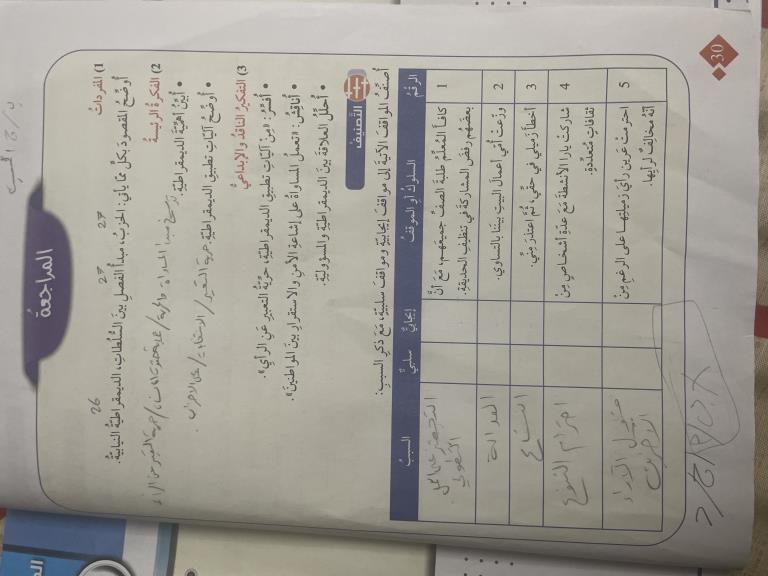 المراجعة
1) المفردات
أوضّحُ المقصودَ بكلٍّ ممّا يأتي: الحزبِ، مبدأ الفصلِ بينَ السُّلُطاتِ، الديمقراطيّةِ النيابيّةِ.
27 27 26
2) الفكرةُ الرئيسةُ
• أُبيّنُ أهمّيّةَ الديمقراطيّةِ.
• أوضّحُ آليّاتِ تطبيقِ الديمقراطيّةِ. حرية التعبير / الانتخابات /
3) التفكيرُ الناقدُ والإبداعيُّ
• أُفسّرُ: «مِنْ آليّاتِ تطبيقِ الديمقراطيّةِ، حرّيّةُ التعبيرِ عنِ الرأيِ».
• أُناقشُ: «تعملُ المساواةُ على إشاعةِ الأمنِ والاستقرارِ بينَ المواطنينَ».
• أُحلّلُ العلاقةَ بينَ الديمقراطيّةِ والمسؤوليّةِ.
التصنيف
أُصنّفُ المواقفَ الآتيةَ إلى مواقفَ إيجابيّةٍ ومواقفَ سلبيّةٍ، معَ ذكرِ السببِ:
الرقمُ السلوكُ أو الموقفُ إيجابيٌّ سلبيٌّ السببُ
1 كافأَ المُعلّمُ طلبةَ الصفِّ جميعَهم، معَ أنَّ
بعضَهُم رفضَ المشاركةَ في تنظيفِ الحديقةِ.
2 وزّعتْ أمّي أعمالَ البيتِ بيننا بالتساوي. العدالة
3 أخطأَ زميلي في حقّي، ثمَّ اعتذرَ منّي. التسامح
4 شاركتْ يارا الأنشطةَ معَ عدّةِ أشخاصٍ مِنْ
ثقافاتٍ متعدّدةٍ. احترام التنوع
5 احترمتْ عرينُ رأيَ زميلتِها على الرغمِ مِنْ
أنّهُ مخالفٌ لرأيِها.
30